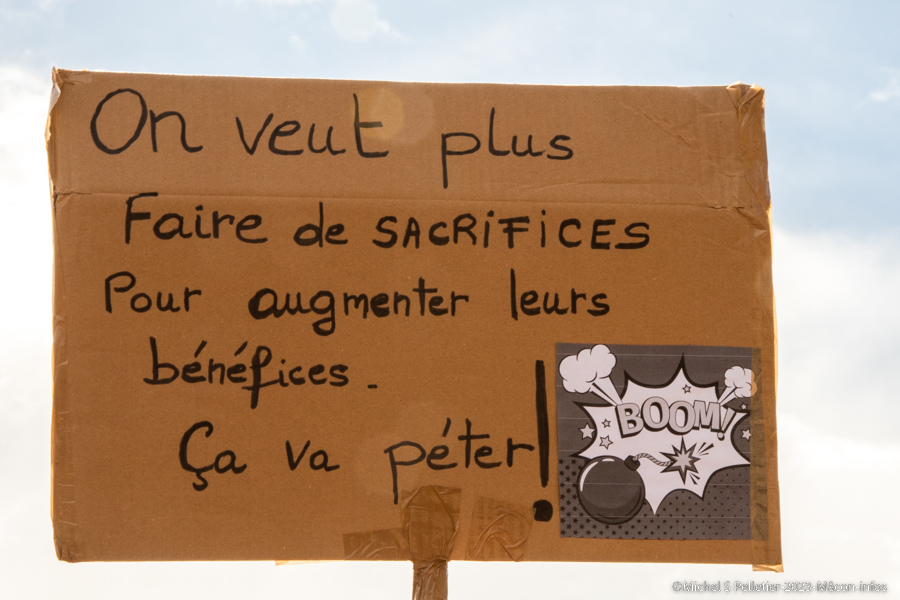 On veut plus
Faire de SACRiFiCES
Pour augmenter leurs
bénéfices.
Ça va péter!
BOOM!
©Michel S Pelletier 2023-Mâcon-infos